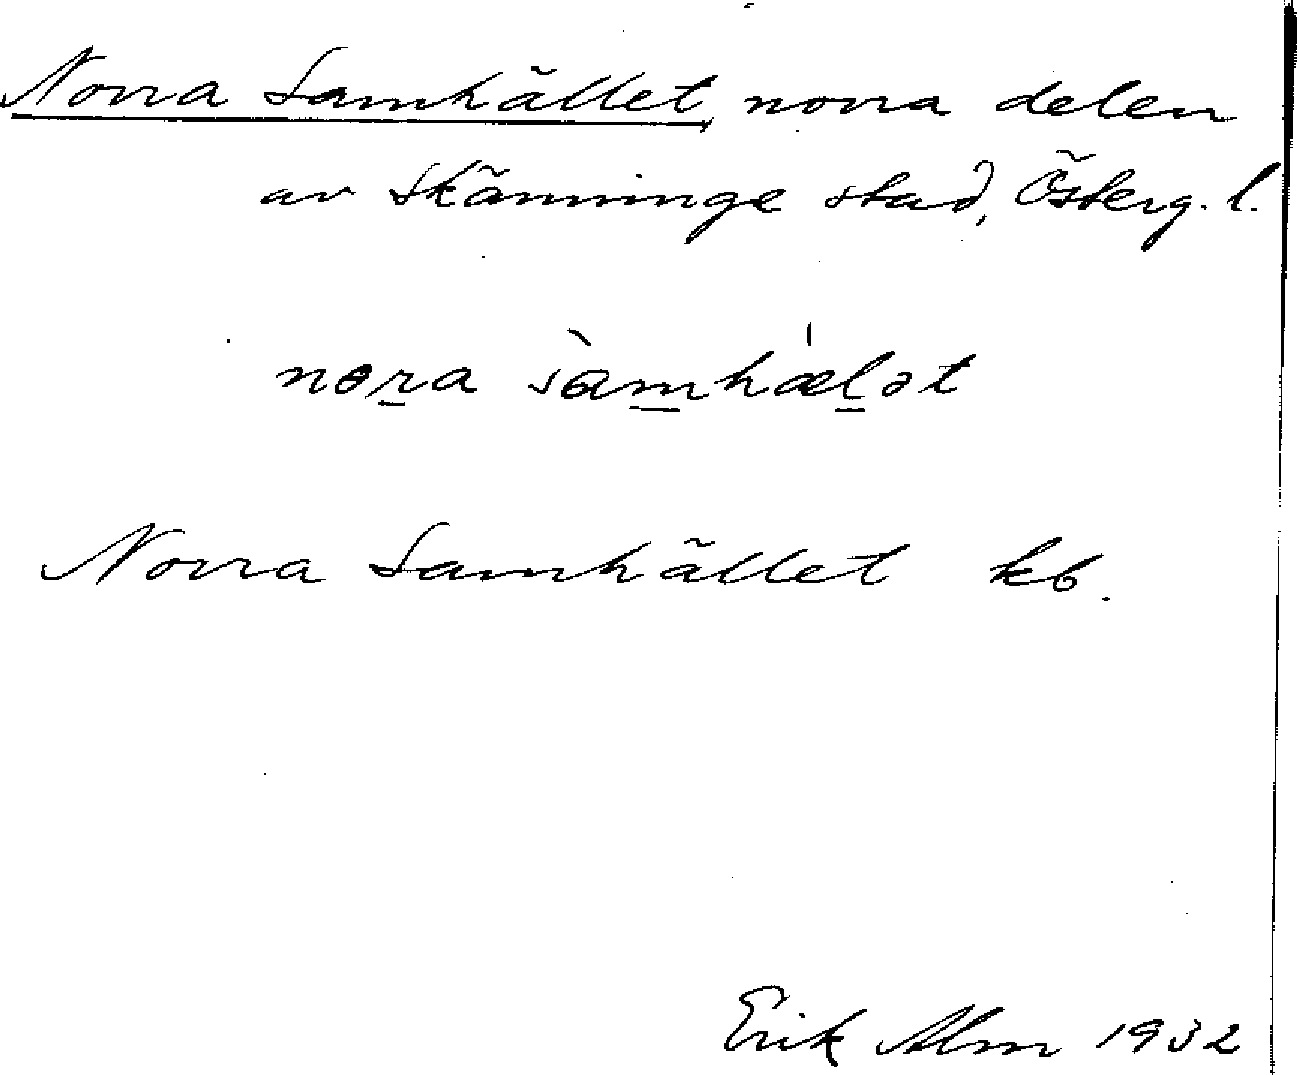 Norra Samhället, norra delen
av Skänninge stad, Österg. l.
nɵr̲a sàm̲hæ̍l̲ət
Norra Samhället kb.
Erik Alm 1932